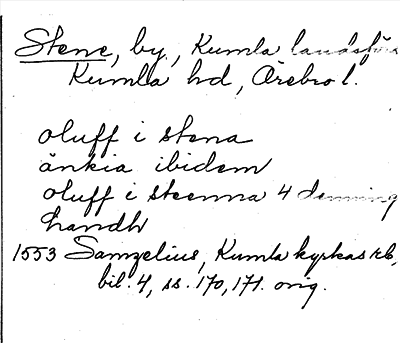 Stene, by, Kumla landsförs
Kumla hd, Örebro l.
oluff i stena
änkia ibidem
oluff i steenna 4 denning
handh
1553 Samzelius, Kumla kyrkas rb,
bil. 4, ss. 170, 171. orig.